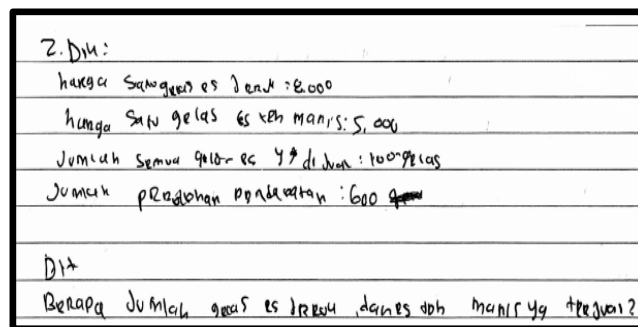 2. Dik:
harga satu gelas es Jeruk : 8.000
harga satu gelas es teh manis : 5.000
Jumlah semua gelas es yg di Jual : 100 gelas
Jumlah perolehan pendapatan : 600
Dit
Berapa Jumlah gelas es Jeruk, dan es teh manis yg terjual?